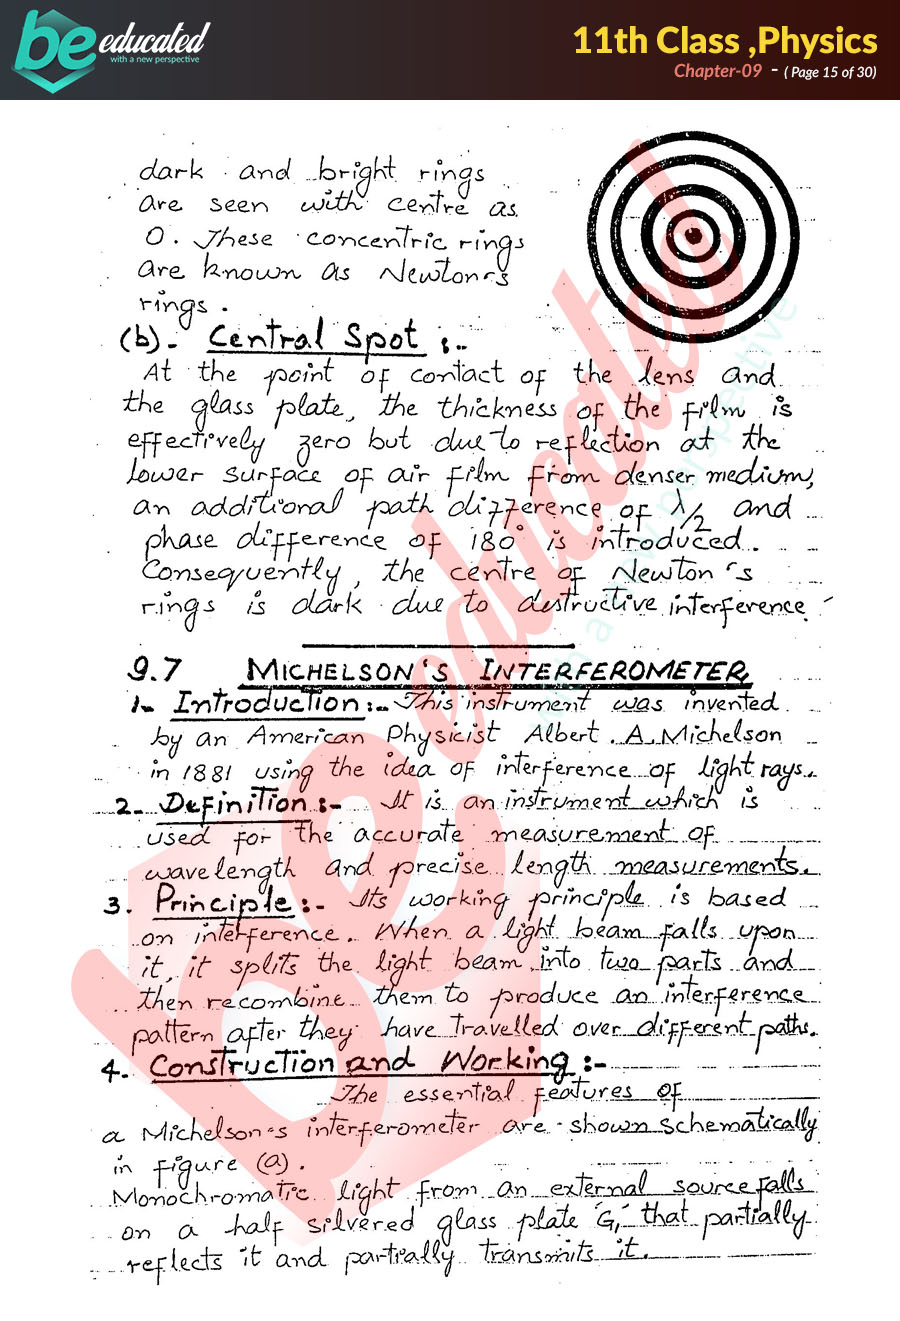 be educated
with a new perspective
11th Class ,Physics
Chapter-09 - ( Page 15 of 30)
dark and bright rings
are seen with centre as
O. These concentric rings
are known as Newton's
rings.
(b)- Central Spot :-
At the point of contact of the lens and
the glass plate, the thickness of the film is
effectively zero but due to reflection at the
lower surface of air film from denser medium,
an additional path difference of λ/2 and
phase difference of 180° is introduced.
Consequently, the centre of Newton's
rings is dark due to destructive interference
9.7 MICHELSON'S INTERFEROMETER
1- Introduction:- This instrument was invented
by an American Physicist Albert . A. Michelson
in 1881 using the idea of interference of light rays.
2- Definition:- It is an instrument which is
used for the accurate measurement of
wavelength and precise length measurements.
3. Principle:- Its working principle is based
on interference. When a light beam falls upon
it, it splits the light beam into two parts and
then recombine them to produce an interference
pattern after they have travelled over different paths.
4. Construction and Working:-
The essential features of
a Michelson's interferometer are shown schematically
in figure (a).
Monochromatic light from an external source falls
on a half silvered glass plate G₁, that partially
reflects it and partially transmits it.
be educated
with a new perspective